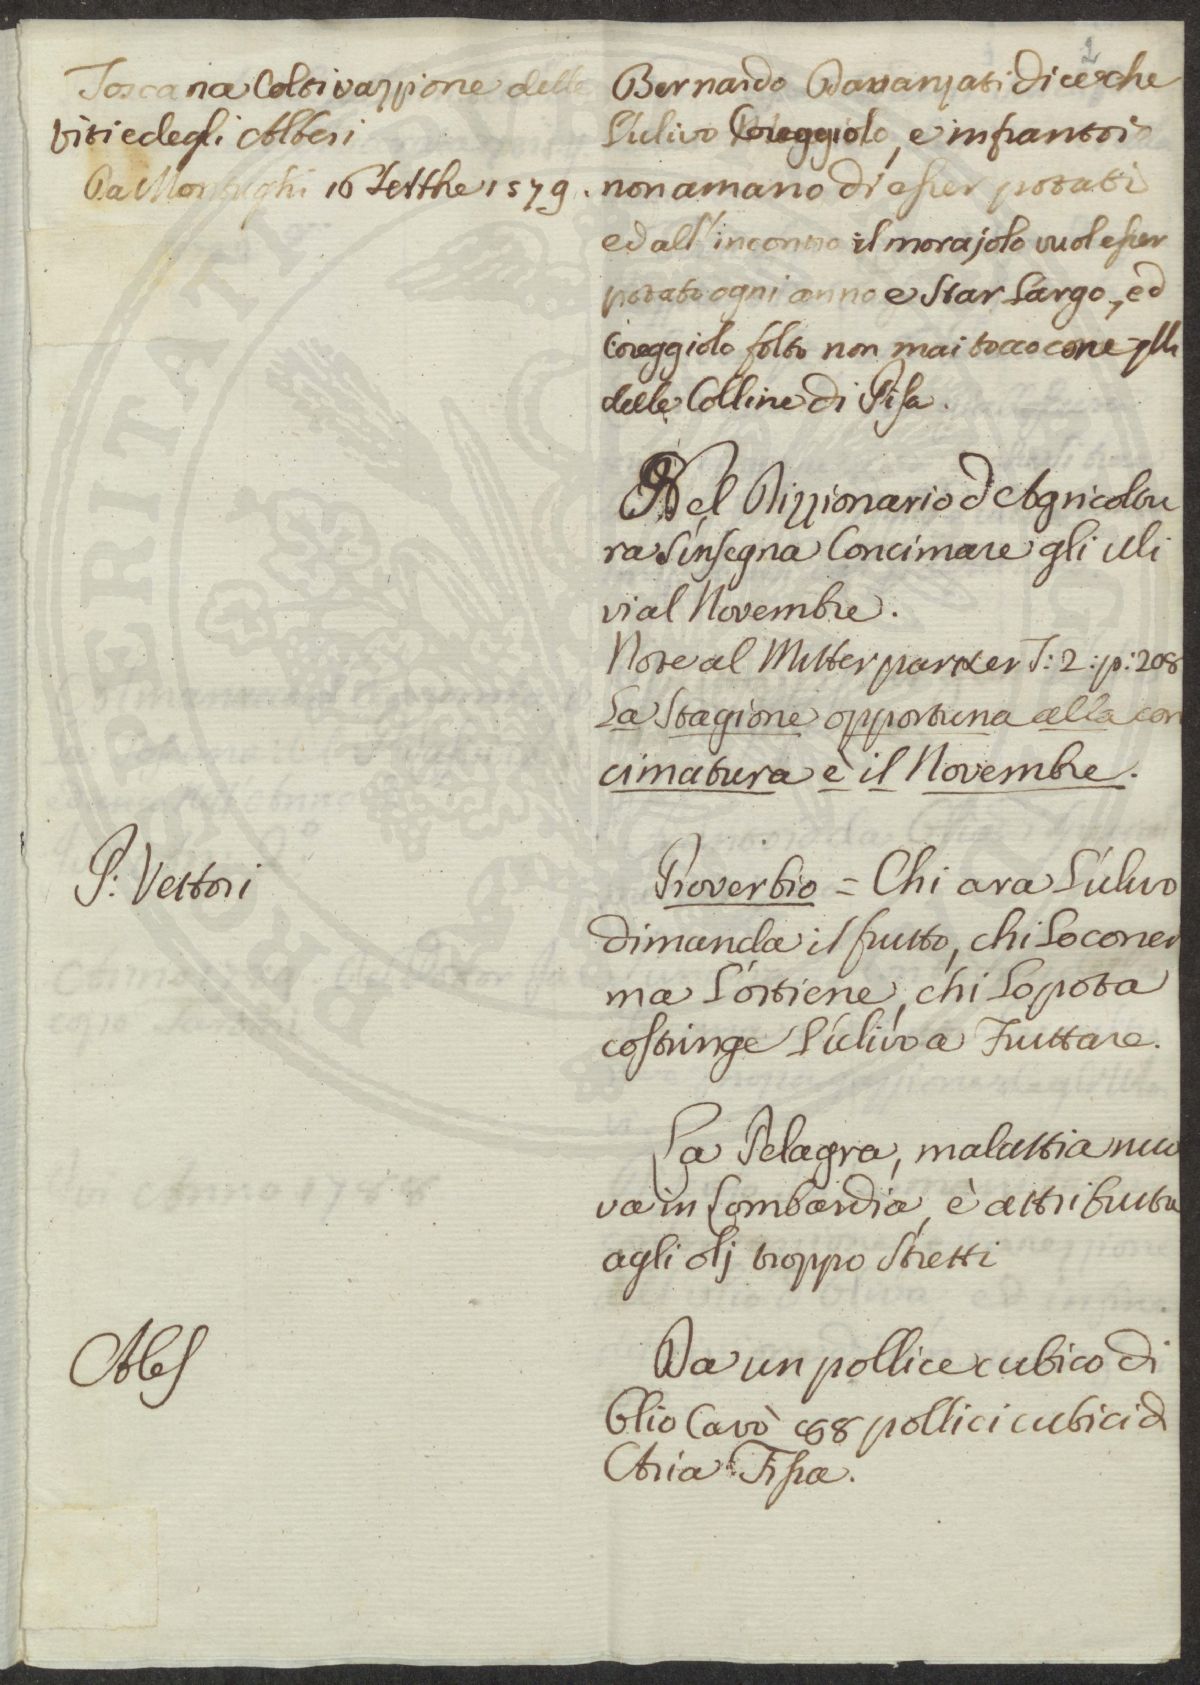 2
Toscana Coltivazzione delle
Viti e degli Alberi
Da Montughi 16 Settbre 1579.
Bernardo Davanzati dice che
l'ulivo Coreggiolo, e infrantoio
non amano di esser potati
ed all'incontro il morajolo vuol esser
potato ogni anno e star largo, ed
Coreggiolo folto non mai tocco come
delle Colline di Pisa.
Nel Dizzionario d'Agricoltu
ra s'insegna Concimare gli uli
vi al Novembre.
Note al Mitterparker T: 2: p: 208
La Stagione opportuna alla con
cimatura è il Novembre.
P: Vettori
Proverbio = Chi ara l'ulivo
dimanda il frutto, chi lo conci
ma l'ottiene, chi lo pota
costringe l'ulivo a Fruttare.
La Pelagra, malattia nuo
va in Lombardia, è attribuita
agli olj troppo stretti
Ales
Da un pollice cubico di
Olio Cavò 88 pollici cubici d
Aria Fissa.